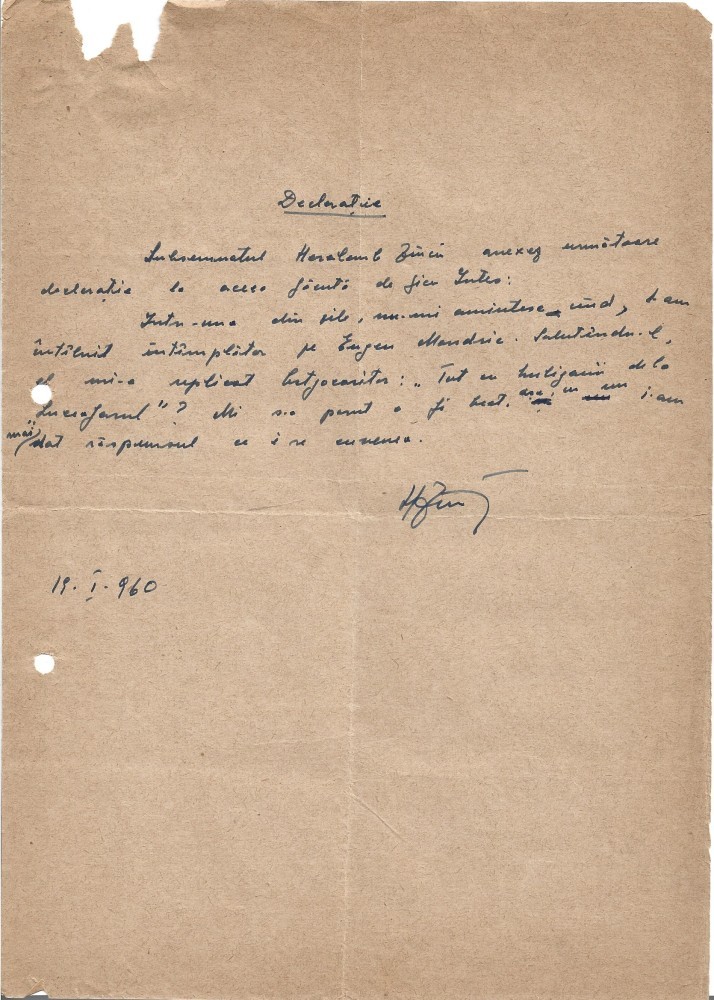 Declarație
Subsemnatul Haralamb Zincă anexez următoare
declarație la aceea făcută de Gicu
Într-una din zile, nu-mi amintesc cînd, l-am
întîlnit întîmplător pe Eugen Mandric. Salutîndu-l,
el mi-a replicat batjocoritor: „Tot cu huliganii de la
"Luceafărul"? Mi s-a părut a fi beat, așa, că nu i-am
mai dat răspunsul ce i se cuvenea.
19. I. 960